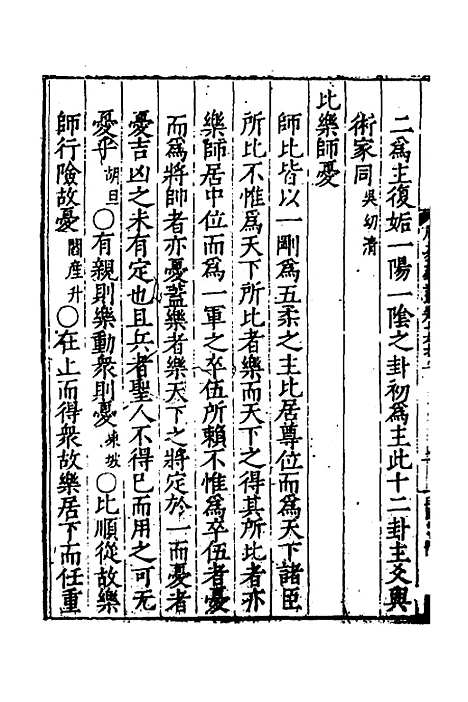 二為主復姤一陽一陰之卦初為主此十二卦主爻與
術家同吳幼清
比樂師憂
師比皆以一剛為五柔之主比居尊位而為天下諸臣
所比不惟為天下所比者樂而天下之得其所比者亦
樂師居中位而為一軍之卒伍所賴不惟為卒伍者憂
而為將帥者亦憂蓋樂者樂天下之將定於一而憂者
憂吉凶之未有定也且兵者聖人不得已而用之可无
憂乎胡旦○有親則樂動衆則憂○比順從故樂
師行險故憂閻彥升○在上而得衆故樂居下而任重